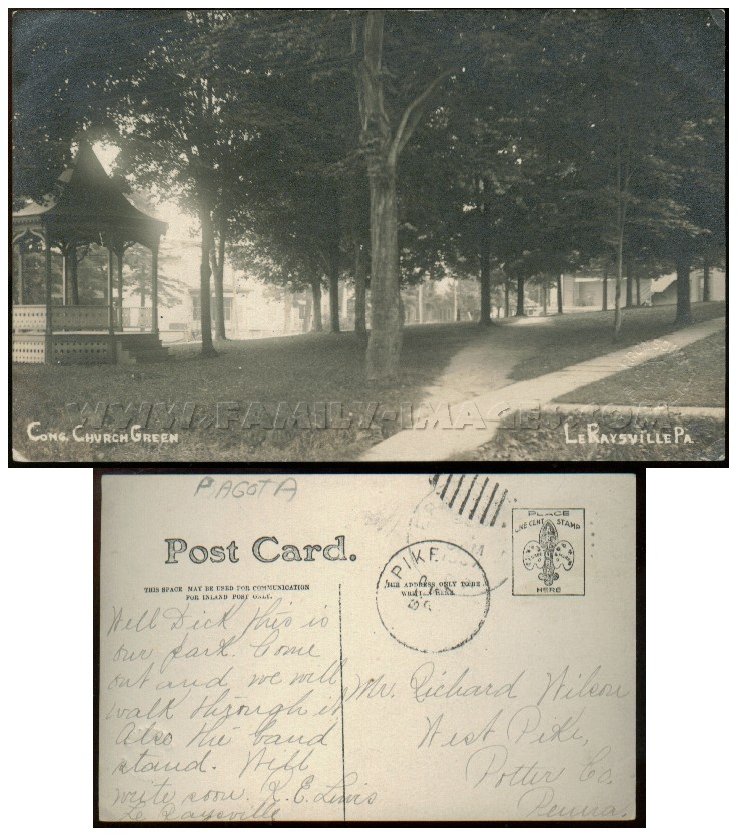 WWW.FAMILY-IMAGES.COM
CONG. CHURCH GREEN
LERAYSVILLE PA.
PAGOTA
Post Card.
THIS SPACE MAY BE USED FOR COMMUNICATION
FOR INLAND POST ONLY.
PIKE
THE ADDRESS ONLY TO BE
WRITTEN HERE
PLACE
ONE CENT STAMP
HERE
Well Dick this is
our park. Come
out and we will
walk through it
Also the band
stand. Will
write soon. R. E. Lewis
Le Raysville
Mr. Richard Wilson
West Pike,
Potter Co.
Penna.